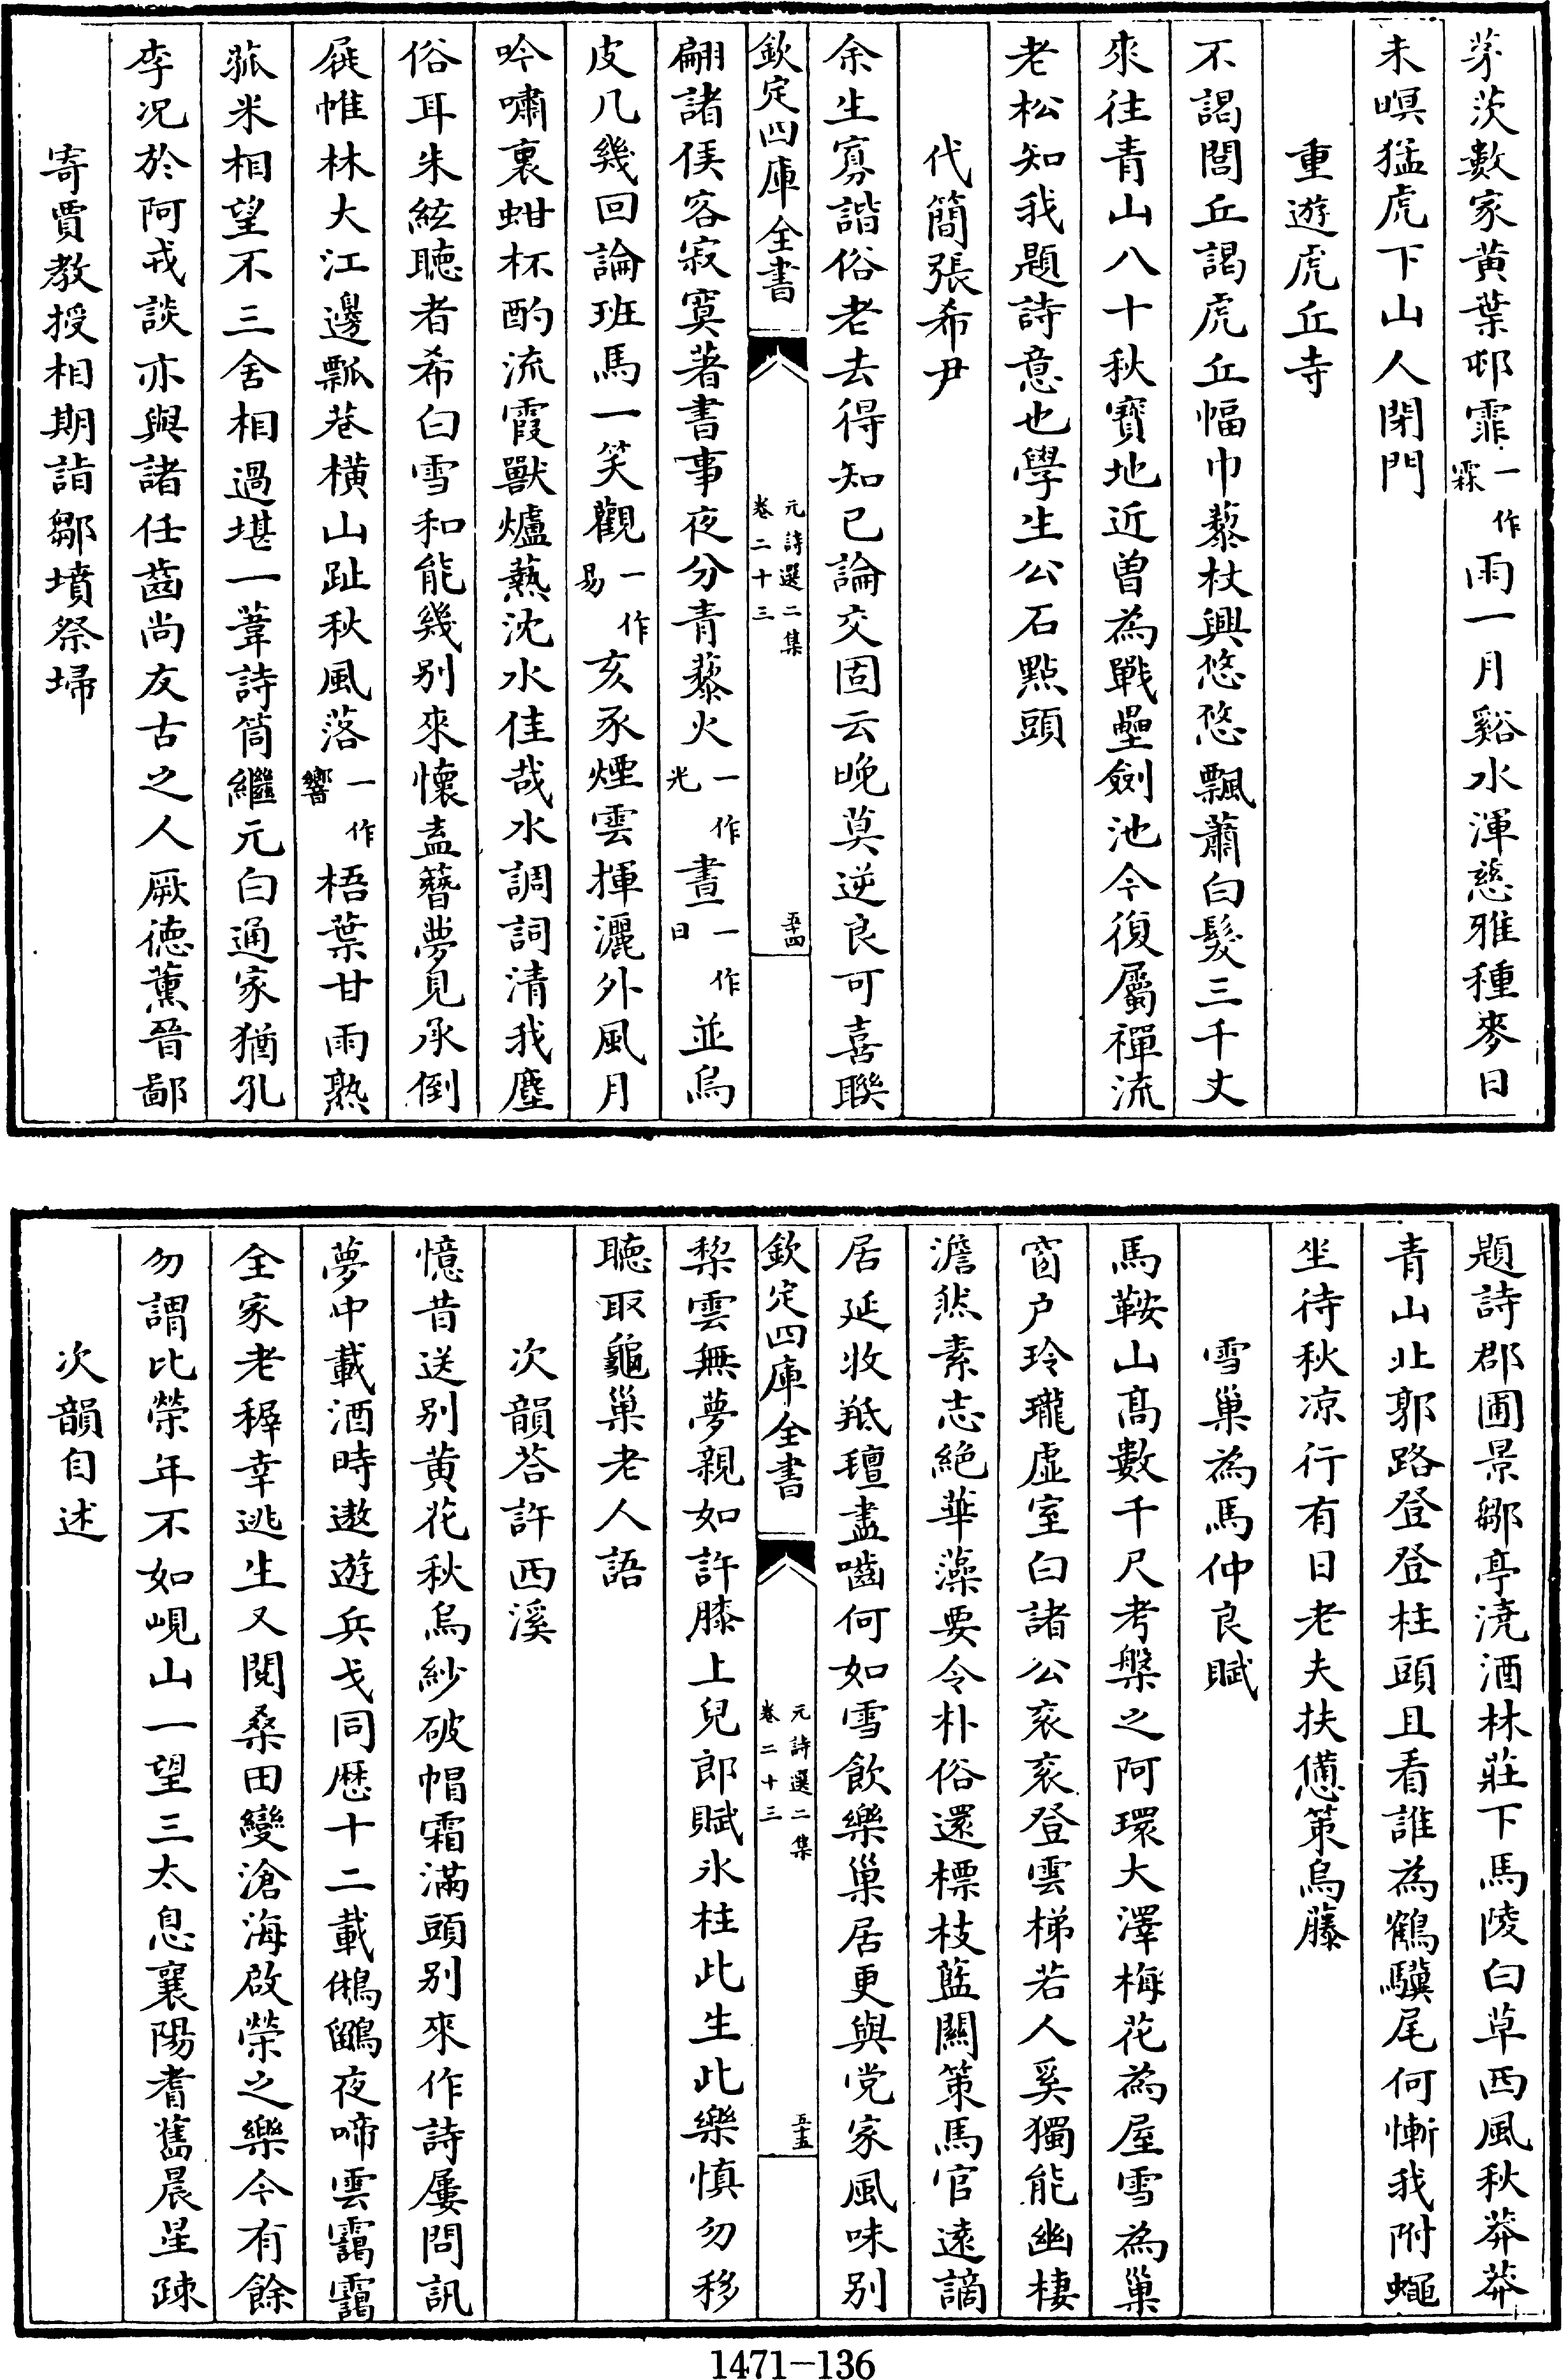 茅茨數家黄葉邨霏一作霖雨一月谿水渾慈雅種麥日
未暝猛虎下山人閉門
重遊虎丘寺
不謁閭丘謁虎丘幅巾藜杖興悠悠飄蕭白髮三千丈
來往青山八十秋寳地近曽為戰壘劍池今復屬禪流
老松知我題詩意也學生公石㸃頭
代簡張希尹
余生寡諧俗老去得知已論交固云晚莫逆良可喜聯
欽定四庫全書
元詩選二集
卷二十三
五十四
翩諸侯客寂寞著書事夜分青藜火一作光晝一作日並烏
皮几幾回論班馬一笑觀一作易亥豕煙雲揮灑外風月
吟嘯裏蚶杯酌流霞獸爐爇沈水佳哉水調詞清我塵
俗耳朱絃聽者希白雪和能幾别來懷盍簪夢見承倒
屣帷林大江邊瓢巷横山趾秋風落一作響梧葉甘雨熟
菰米相望不三舍相過堪一葦詩筒繼元白通家猶孔
李况於阿戎談亦與諸任齒尚友古之人厥徳薫晉鄙
寄賈教授相期詣鄒墳祭埽
題詩郡圃景鄒亭澆酒林莊下馬陵白草西風秋莽莽
青山北郭路登登柱頭且看誰為鶴驥尾何慚我附蠅
坐待秋凉行有日老夫扶憊策烏藤
雪巢為馬仲良賦
馬鞍山髙數千尺考槃之阿環大澤梅花為屋雪為巢
窗户玲瓏虚室白諸公衮衮登雲梯若人奚獨能幽棲
澹然素志絶華藻要令朴俗還標枝藍關策馬官遠謫
居延收羝氊盡囓何如雪飲樂巢居更與党家風味别
欽定四庫全書
元詩選二集
卷二十三
五十五
棃雲無夢親如許膝上兒郎賦氷柱此生此樂慎勿移
聽取龜巢老人語
次韻荅許西溪
憶昔送别黄花秋烏紗破帽霜滿頭别來作詩屢問訊
夢中載酒時遨遊兵戈同歴十二載鵂鶹夜啼雲靄靄
全家老穉幸逃生又閲桑田變滄海啟榮之樂今有餘
勿謂比榮年不如峴山一望三太息襄陽耆舊晨星疎
次韻自述
1471-136